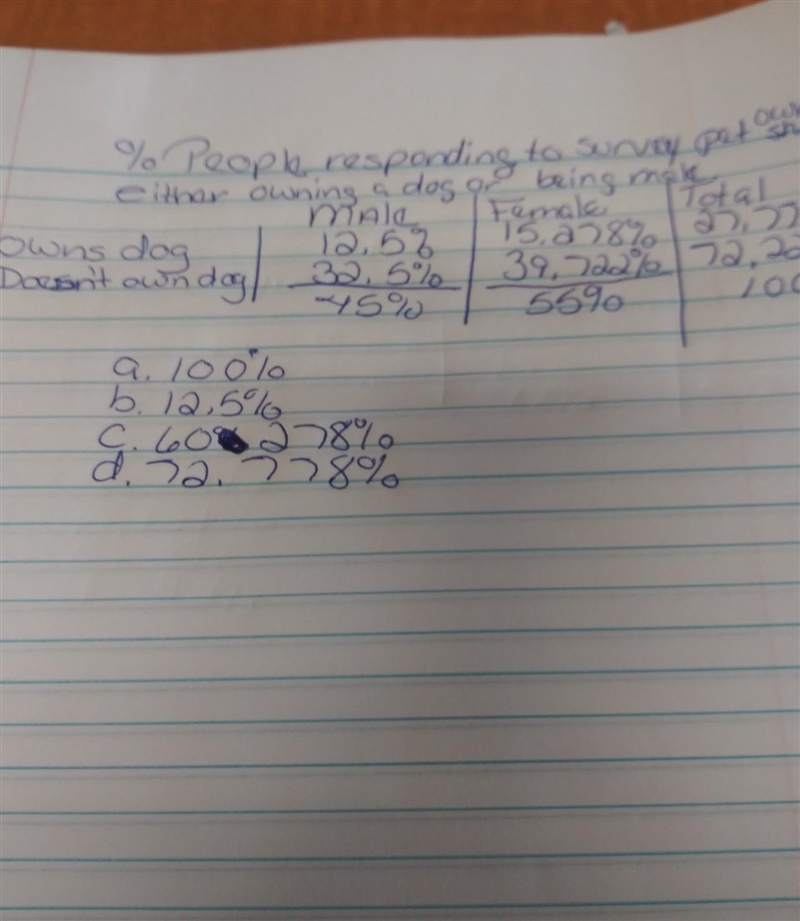 % People responding to survey pet own
either owning a dog or being male
Male Female Total
Owns dog 12.5% 15.278% 27.77
Doesn't own dog 32.5% 39.722% 72.22
45% 55% 100
a. 100%
b. 12.5%
c. 60.278%
d. 72.778%